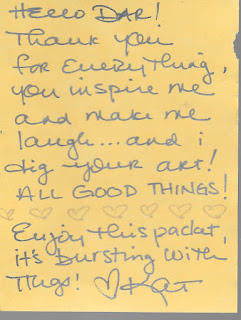 HELLO DAR!
Thank you
for EVERYTHING,
you inspire me
and make me
laugh...and i
dig your art!
ALL GOOD THINGS!
Enjoy this packet,
it's bursting with
Hugs! ♡Kat